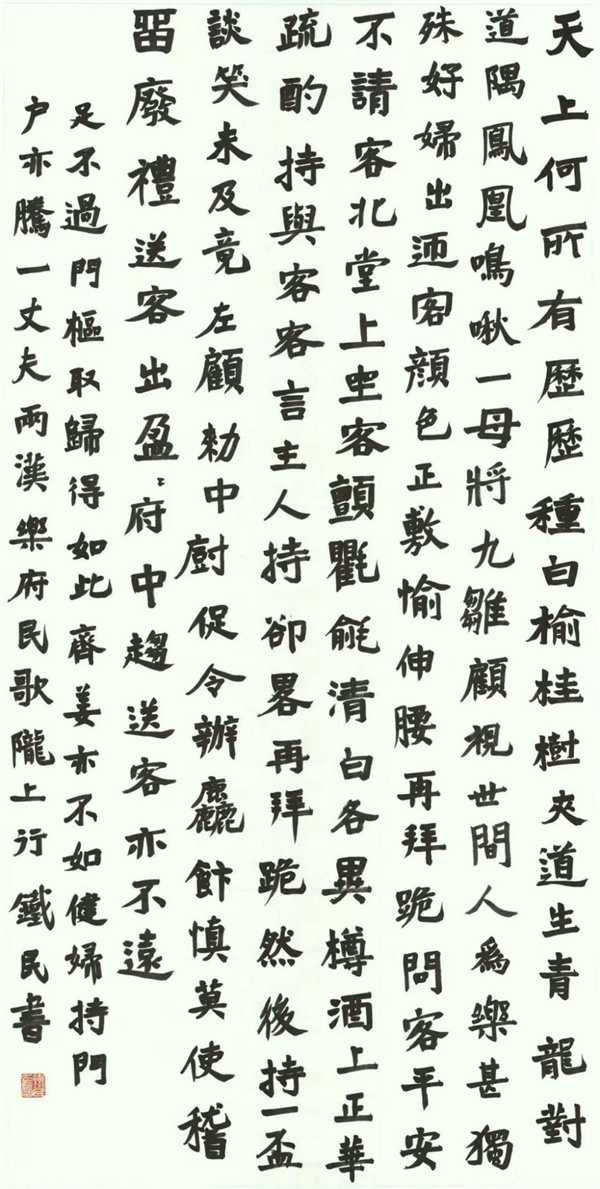 天上何所有歷歷種白榆桂樹夾道生青龍對
道隅鳳凰鳴啾一母將九雛顧視世間人爲樂甚獨
殊好婦出迎客顔色正敷愉伸腰再拜跪問客平安
不請客北堂上坐客顫氍毹清白各異樽酒上正華
疏酌持與客客言主人持卻畧再拜跪然後持一盃
談笑未及竟左顧勑中廚促令辦麤飰慎莫使稽
畱廢禮送客出盈〻府中趨送客亦不遠
足不過門樞取歸得如此齊姜亦不如健婦持門
户亦騰一丈夫兩漢樂府民歌隴上行鐵民書